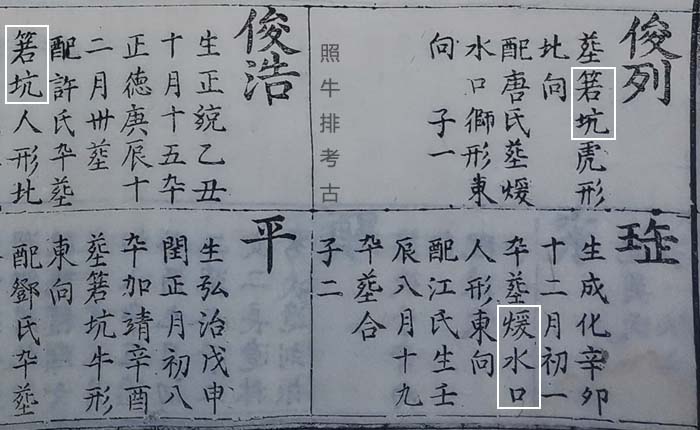 俊列
塟箬坑虎形
北向
配唐氏塟煖
水口獅形東
向　子一
照牛排考古
俊浩
生正綂乙丑
十月十五卒
正德庚辰十
二月卅塟
配許氏卒塟
箬坑人形北
生成化辛卯
十二月初一
卒塟煖水口
人形東向
配江氏生壬
辰八月十九
卒塟合
子二
平
生弘治戊申
閏正月初八
卒加靖辛酉
塟箬坑牛形
東向
配鄧氏卒塟